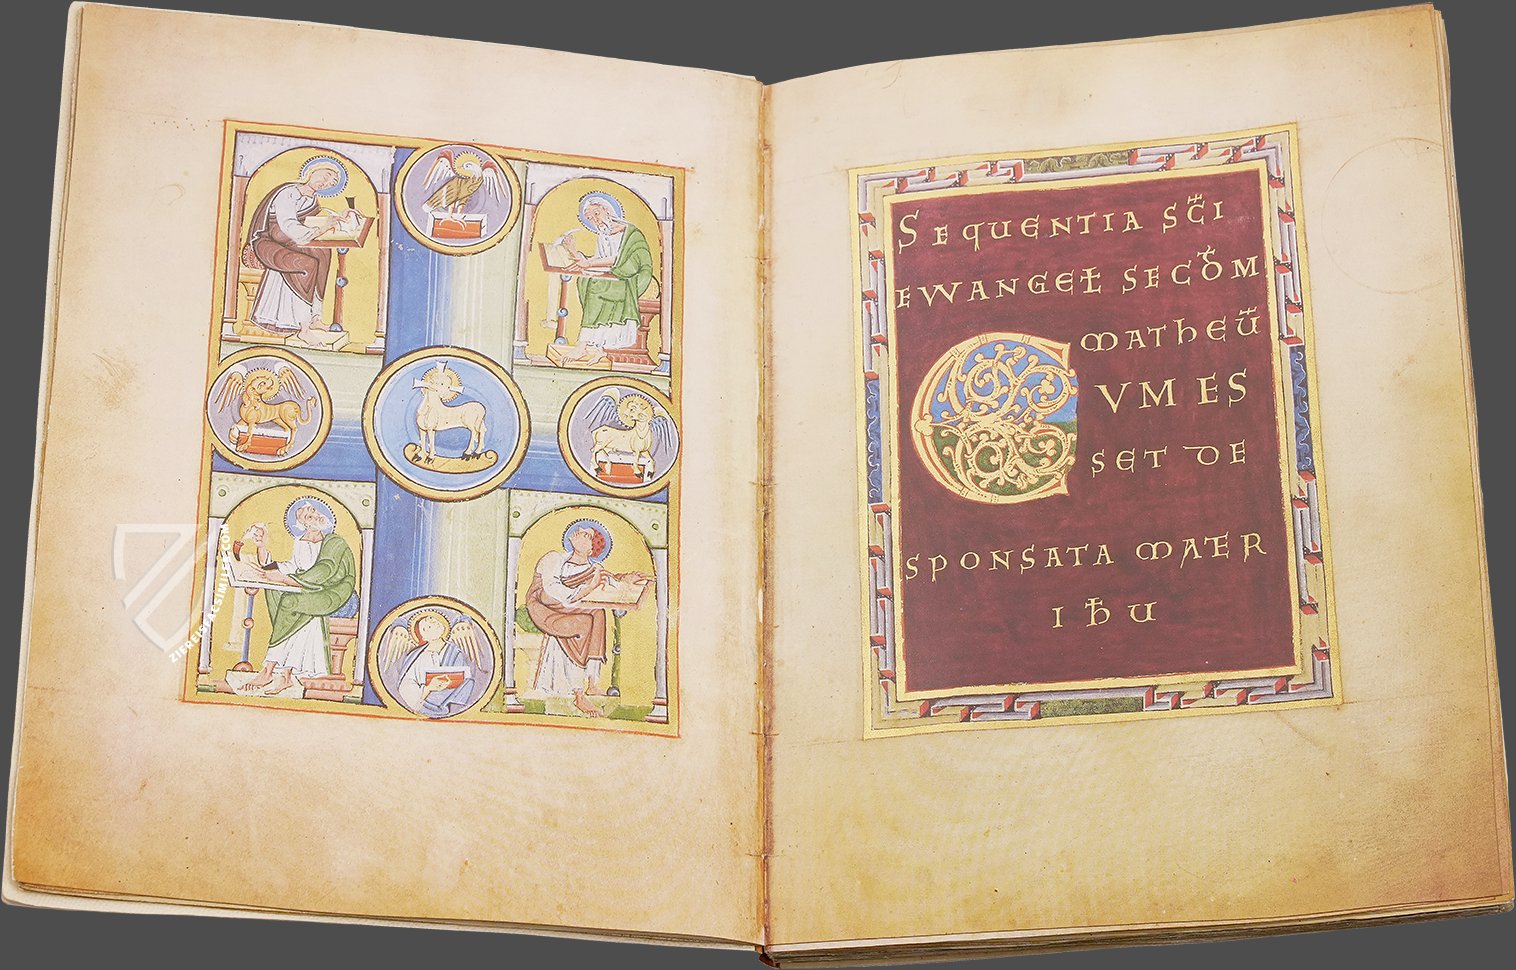 SEQUENTIA SC̄I
EWANGEƚ SECD̄M
MATHEŪ
CVM ES
SET DE
SPONSATA MATER
IħU
ZIEREIS FACSIMILES.COM